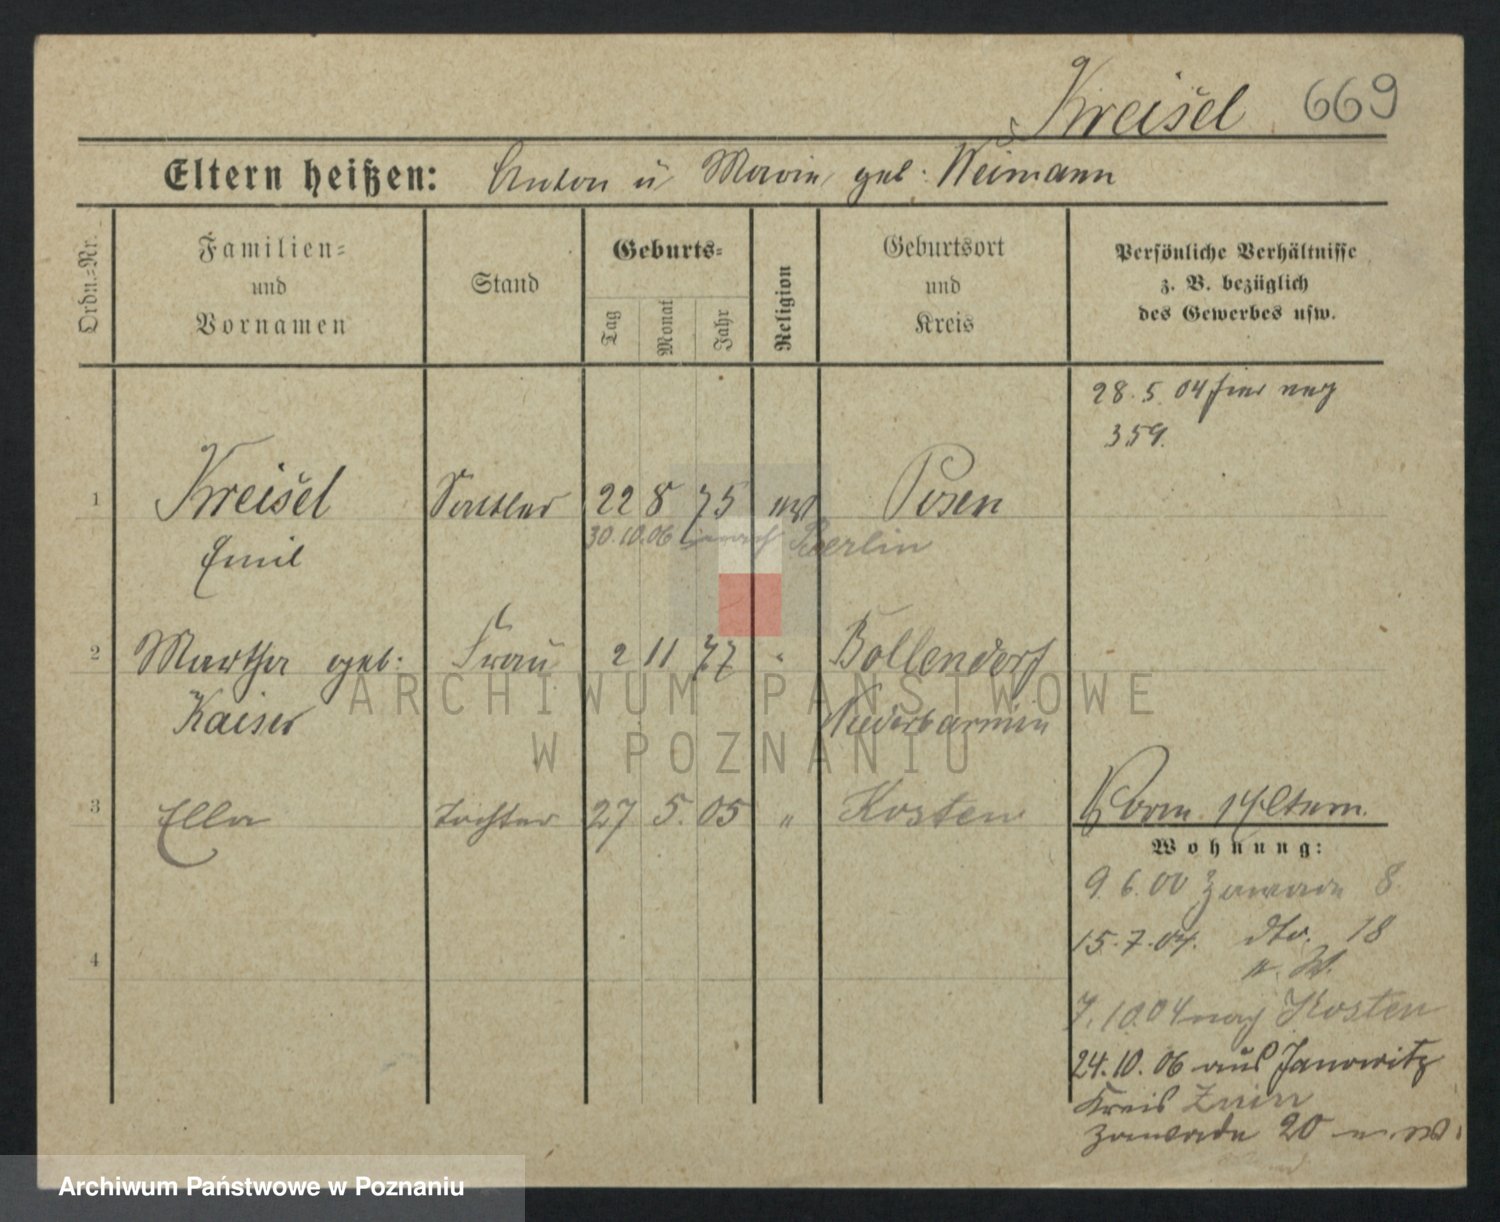 Kreisel 669
Eltern heißen: Anton u Marie geb: Weimann
Ordn.=Nr.
Familien=
und
Vornamen
Stand
Geburts=
Tag
Monat
Jahr
Religion
Geburtsort
und
Kreis
Persönliche Verhältnisse
z. B. bezüglich
des Gewerbes usw.
28. 5. 04
359.
1 Kreisel Sattler 22 8 75 ev Posen
30.10.06 nach Berlin
Emil
2 Martha geb: Frau 2 11 77 " Bollendorf
Kaiser Niederbarmin
3 Ella Tochter 27 5. 05 " Kosten
Wohnung:
9. 6. 00 Zawade 8
15. 7. 04. dto. 18
7. 10 04 nach Kosten
4
24. 10. 06 aus Janowitz
Kreis Znin
Zawade 20
ARCHIWUM PAŃSTWOWE
W POZNANIU
Archiwum Państwowe w Poznaniu